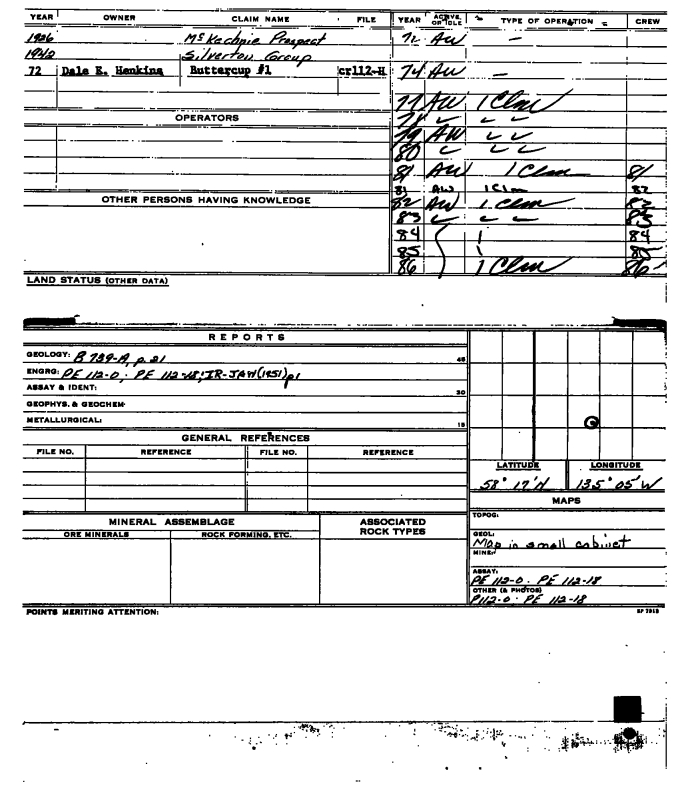 YEAR OWNER CLAIM NAME FILE YEAR ACTIVE OR IDLE TYPE OF OPERATION CREW
1926 McKechnie Prospect 72 AW —
1942 Silverton Group
72 Dale E. Henkins Buttercup #1 cr112-H 74 AW —
77 AW 1 Clm
OPERATORS 78 " " "
79 AW " "
80 " " "
81 AW 1 Clm 81
81 AW 1 Clm 82
OTHER PERSONS HAVING KNOWLEDGE 82 AW 1 Clm 83
83 " " " 83
84 84
85 85
86 1 Clm 86
LAND STATUS (OTHER DATA)
REPORTS
GEOLOGY: B 739-A, p. 21 45
ENGRG: PE 112-0; PE 112-18; IR-JAW(1951)p1
ASSAY & IDENT: 30
GEOPHYS. & GEOCHEM:
METALLURGICAL: 15
GENERAL REFERENCES
FILE NO. REFERENCE FILE NO. REFERENCE
LATITUDE LONGITUDE
58° 17'N 135° 05' W
MAPS
TOPOG:
MINERAL ASSEMBLAGE ASSOCIATED ROCK TYPES
ORE MINERALS ROCK FORMING, ETC.
GEOL:
Map in small cabinet
MINE:
ASSAY:
PE 112-0. PE 112-18
OTHER (& PHOTOS)
P112-0. PE 112-18
POINTS MERITING ATTENTION: